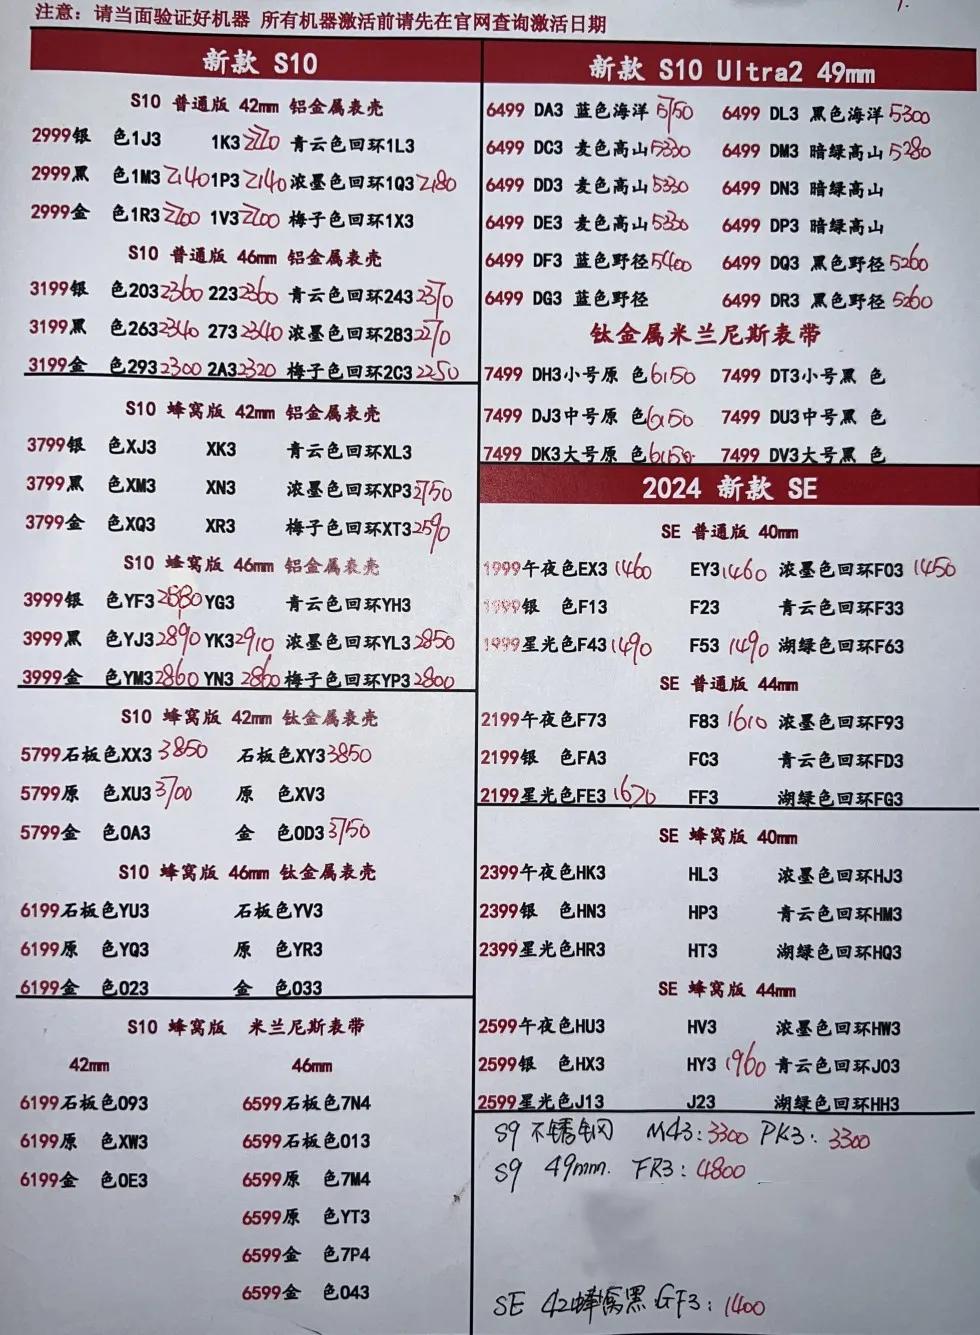 注意：请当面验证好机器 所有机器激活前请先在官网查询激活日期
新款 S10
S10 普通版 42mm 铝合金属表壳
2999银 色1J3 1K3 2220 青云色回环1L3
2999黑 色1M3 2140 1P3 2140 浓墨色回环1Q3 2180
2999金 色1R3 2200 1V3 2200 梅子色回环1X3
S10 普通版 46mm 铝金属表壳
3199银 色203 2360 223 2360 青云色回环243 2370
3199黑 色263 2340 273 2340 浓墨色回环283 2270
3199金 色293 2300 2A3 2320 梅子色回环2C3 2250
S10 蜂窝版 42mm 铝金属表壳
3799银 色XJ3 XK3 青云色回环XL3
3799黑 色XM3 XN3 浓墨色回环XP3 2750
3799金 色XQ3 XR3 梅子色回环XT3 2590
S10 蜂窝版 46mm 铝金属表壳
3999银 色YF3 2880 YG3 青云色回环YH3
3999黑 色YJ3 2890 YK3 2910 浓墨色回环YL3 2850
3999金 色YM3 2860 YN3 2860 梅子色回环YP3 2800
S10 蜂窝版 42mm 钛金属表壳
5799石板色XX3 3850 石板色XY3 3850
5799原 色XU3 3700 原 色XV3
5799金 色0A3 金 色0D3 3750
S10 蜂窝版 46mm 钛金属表壳
6199石板色YU3 石板色YV3
6199原 色YQ3 原 色YR3
6199金 色023 金 色033
S10 蜂窝版 米兰尼斯表带
42mm 46mm
6199石板色093 6599石板色7N4
6199原 色XW3 6599石板色013
6199金 色0E3 6599原 色7M4
6599原 色YT3
6599金 色7P4
6599金 色043
新款 S10 Ultra2 49mm
6499 DA3 蓝色海洋 5750 6499 DL3 黑色海洋 5300
6499 DC3 麦色高山 5330 6499 DM3 暗绿高山 5280
6499 DD3 麦色高山 5330 6499 DN3 暗绿高山
6499 DE3 麦色高山 5330 6499 DP3 暗绿高山
6499 DF3 蓝色野径 5400 6499 DQ3 黑色野径 5260
6499 DG3 蓝色野径 6499 DR3 黑色野径 5260
钛金属米兰尼斯表带
7499 DH3小号原 色 6150 7499 DT3小号黑 色
7499 DJ3中号原 色 6150 7499 DU3中号黑 色
7499 DK3大号原 色 6150 7499 DV3大号黑 色
2024 新款 SE
SE 普通版 40mm
1999午夜色EX3 1460 EY3 1460 浓墨色回环F03 1450
1999银 色F13 F23 青云色回环F33
1999星光色F43 1490 F53 1490 湖绿色回环F63
SE 普通版 44mm
2199午夜色F73 F83 1610 浓墨色回环F93
2199银 色FA3 FC3 青云色回环FD3
2199星光色FE3 1670 FF3 湖绿色回环FG3
SE 蜂窝版 40mm
2399午夜色HK3 HL3 浓墨色回环HJ3
2399银 色HN3 HP3 青云色回环HM3
2399星光色HR3 HT3 湖绿色回环HQ3
SE 蜂窝版 44mm
2599午夜色HU3 HV3 浓墨色回环HW3
2599银 色HX3 HY3 1960 青云色回环J03
2599星光色J13 J23 湖绿色回环HH3
S9 不锈钢 M43：3300 PK3：3300
S9 49mm. FR3：4800
SE 42蜂窝黑 GF3：1400